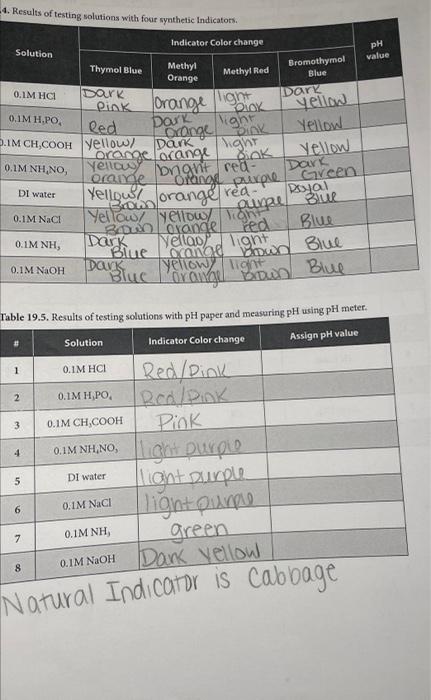 4. Results of testing solutions with four synthetic Indicators.
Solution Indicator Color change pH value
Thymol Blue Methyl Orange Methyl Red Bromothymol Blue
0.1M HCl Dark Pink Orange light Pink Dark Yellow
0.1M H₃PO₄ Red Dark Orange light Pink Yellow
0.1M CH₃COOH yellow/ orange Dark orange light Pink Yellow
0.1M NH₄NO₃ Yellow/ orange bright orange red- purple Dark Green
DI water Yellow/ Brown orange red- purple Royal Blue
0.1M NaCl Yellow/ Brown yellow/ orange light red Blue
0.1M NH₃ Dark Blue Yellow/ orange light Brown Blue
0.1M NaOH Dark Blue Yellow/ orange light Brown Blue
Table 19.5. Results of testing solutions with pH paper and measuring pH using pH meter.
# Solution Indicator Color change Assign pH value
1 0.1M HCl Red/Pink
2 0.1M H₃PO₄ Red/Pink
3 0.1M CH₃COOH Pink
4 0.1M NH₄NO₃ light purple
5 DI water light purple
6 0.1M NaCl light purple
7 0.1M NH₃ green
8 0.1M NaOH Dark Yellow
Natural Indicator is Cabbage